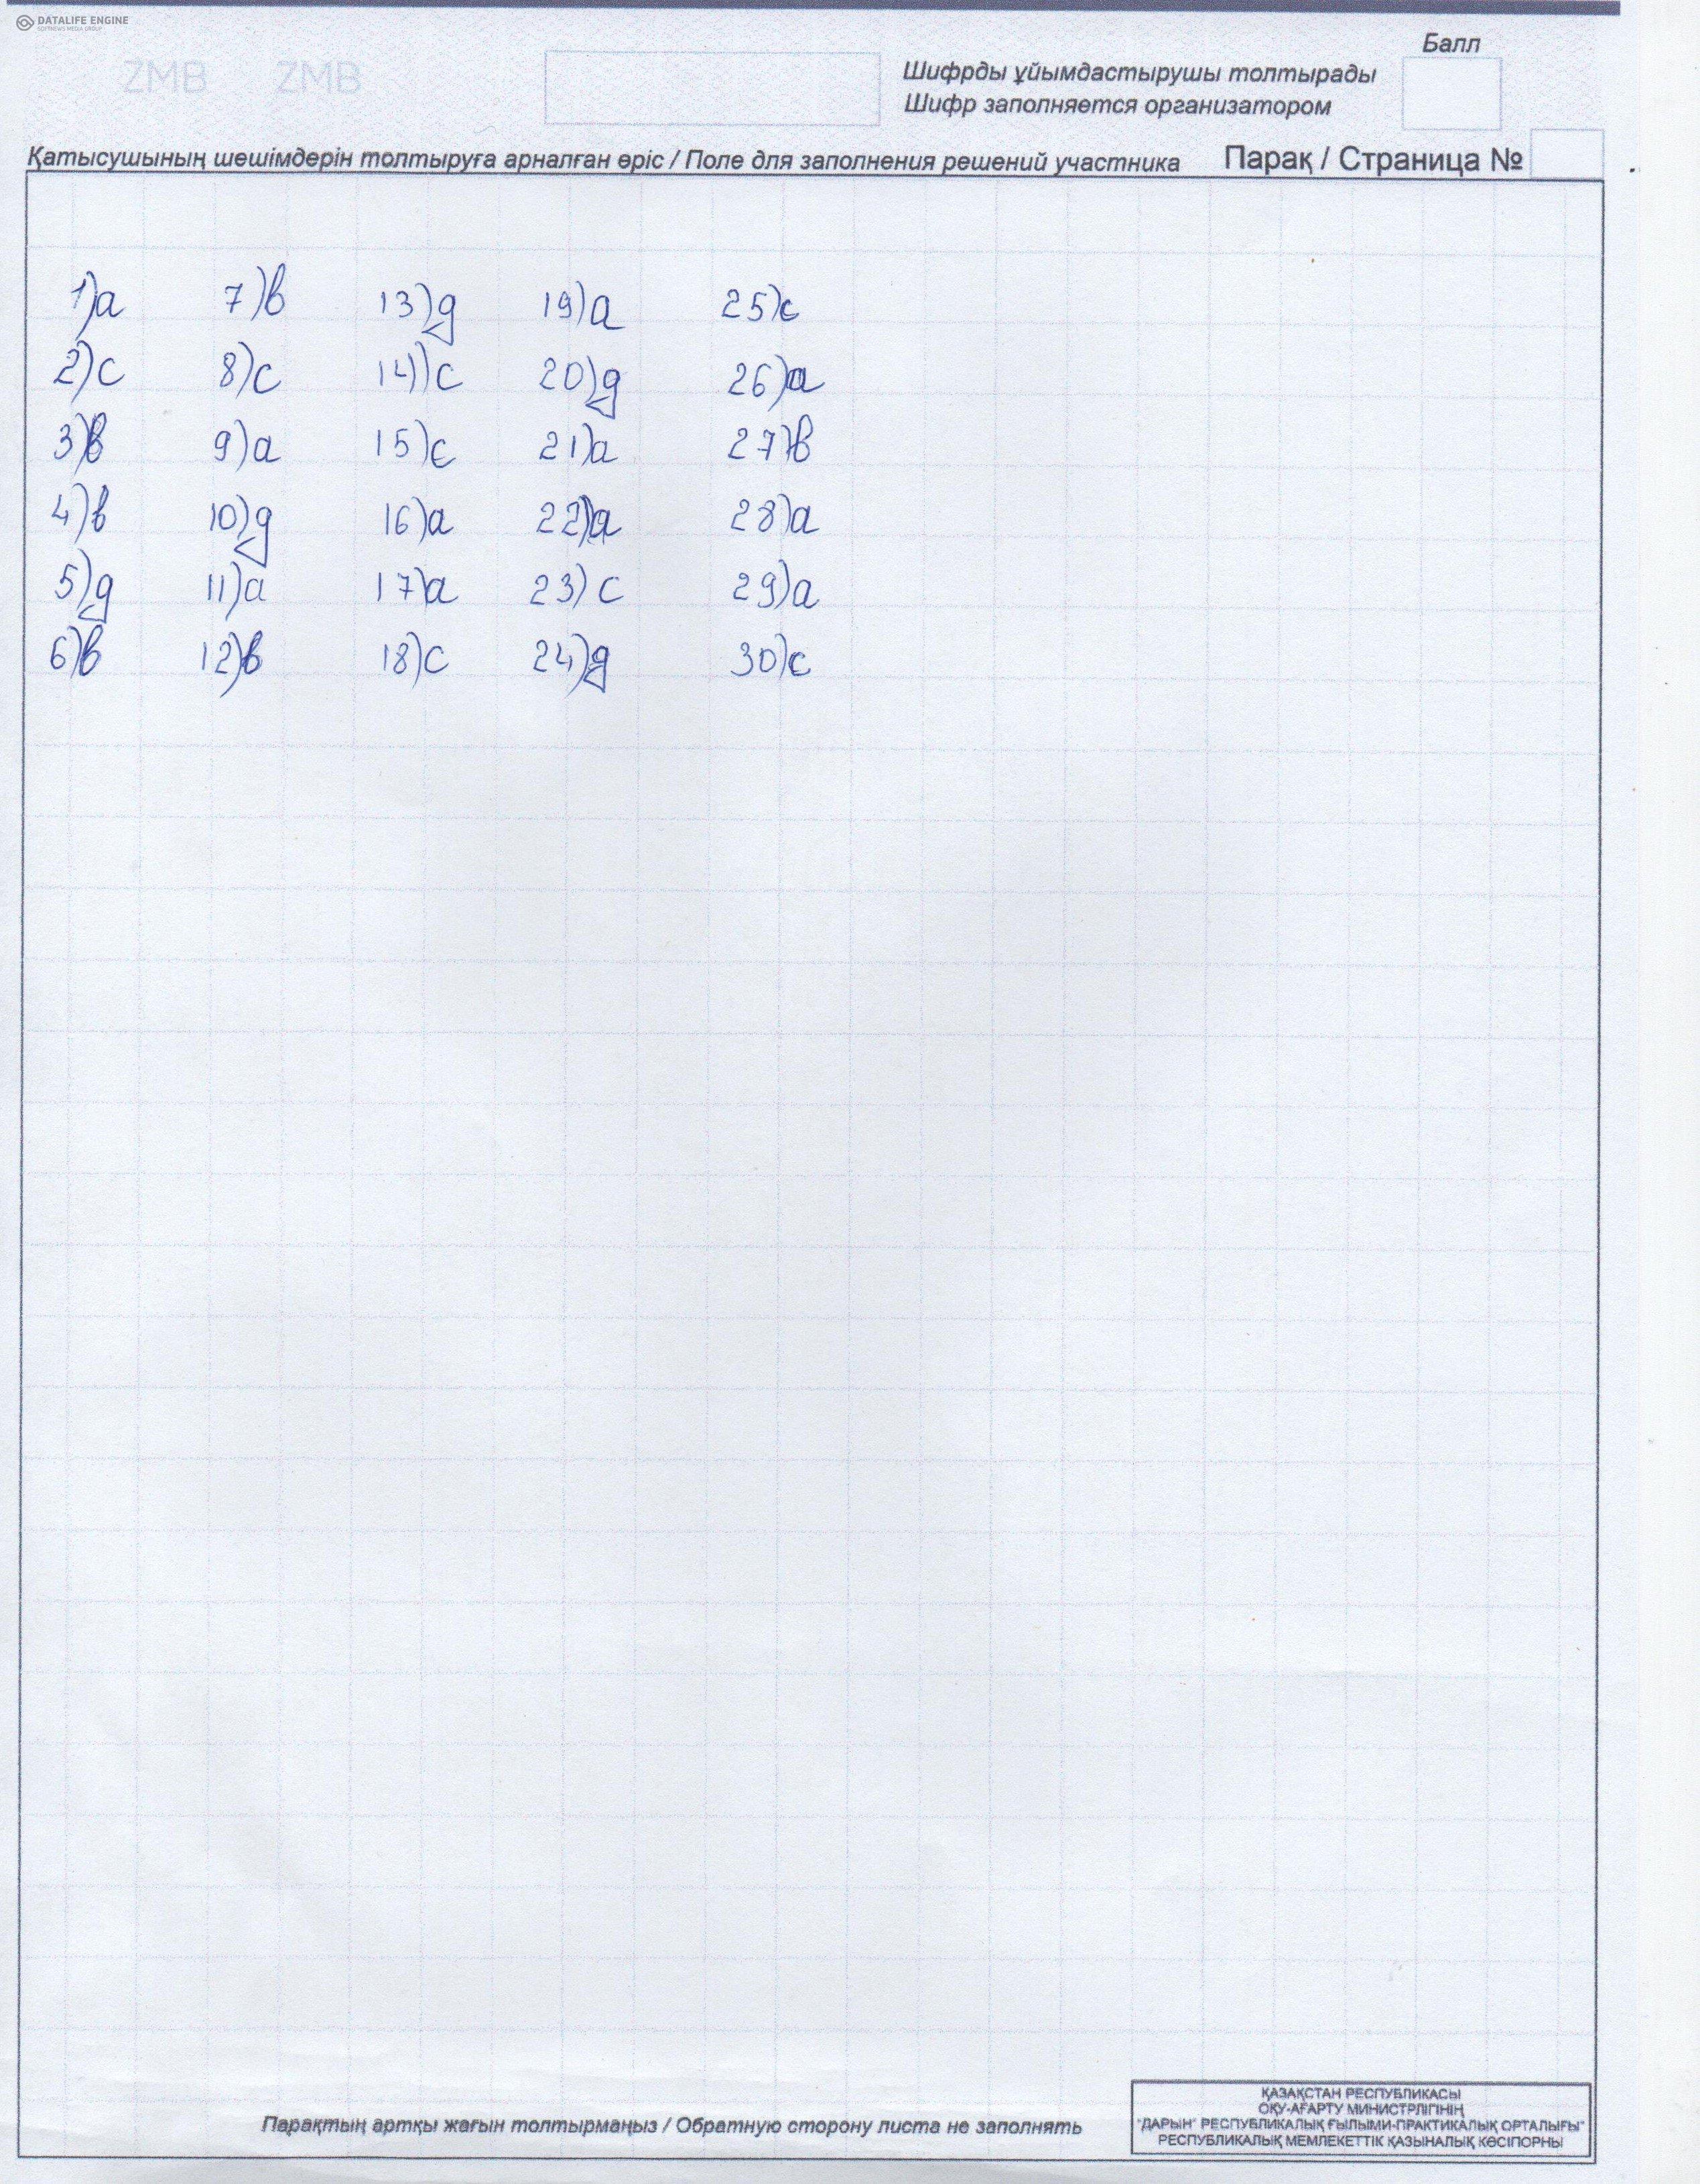 DATALIFE ENGINE
SOFTNEWS MEDIA GROUP
ZMB ZMB
Балл
Шифрды ұйымдастырушы толтырады
Шифр заполняется организатором
Қатысушының шешімдерін толтыруға арналған өріс / Поле для заполнения решений участника Парақ / Страница №
1)a 7)в 13)g 19)a 25)c
2)c 8)c 14)c 20)g 26)a
3)в 9)a 15)c 21)a 27)в
4)в 10)g 16)a 22)a 28)a
5)g 11)a 17)a 23)c 29)a
6)в 12)в 18)c 24)g 30)c
Парақтың артқы жағын толтырмаңыз / Обратную сторону листа не заполнять
ҚАЗАҚСТАН РЕСПУБЛИКАСЫ
ОҚУ-АҒАРТУ МИНИСТРЛІГІНІҢ
"ДАРЫН" РЕСПУБЛИКАЛЫҚ ҒЫЛЫМИ-ПРАКТИКАЛЫҚ ОРТАЛЫҒЫ"
РЕСПУБЛИКАЛЫҚ МЕМЛЕКЕТТІК ҚАЗЫНАЛЫҚ КӘСІПОРНЫ